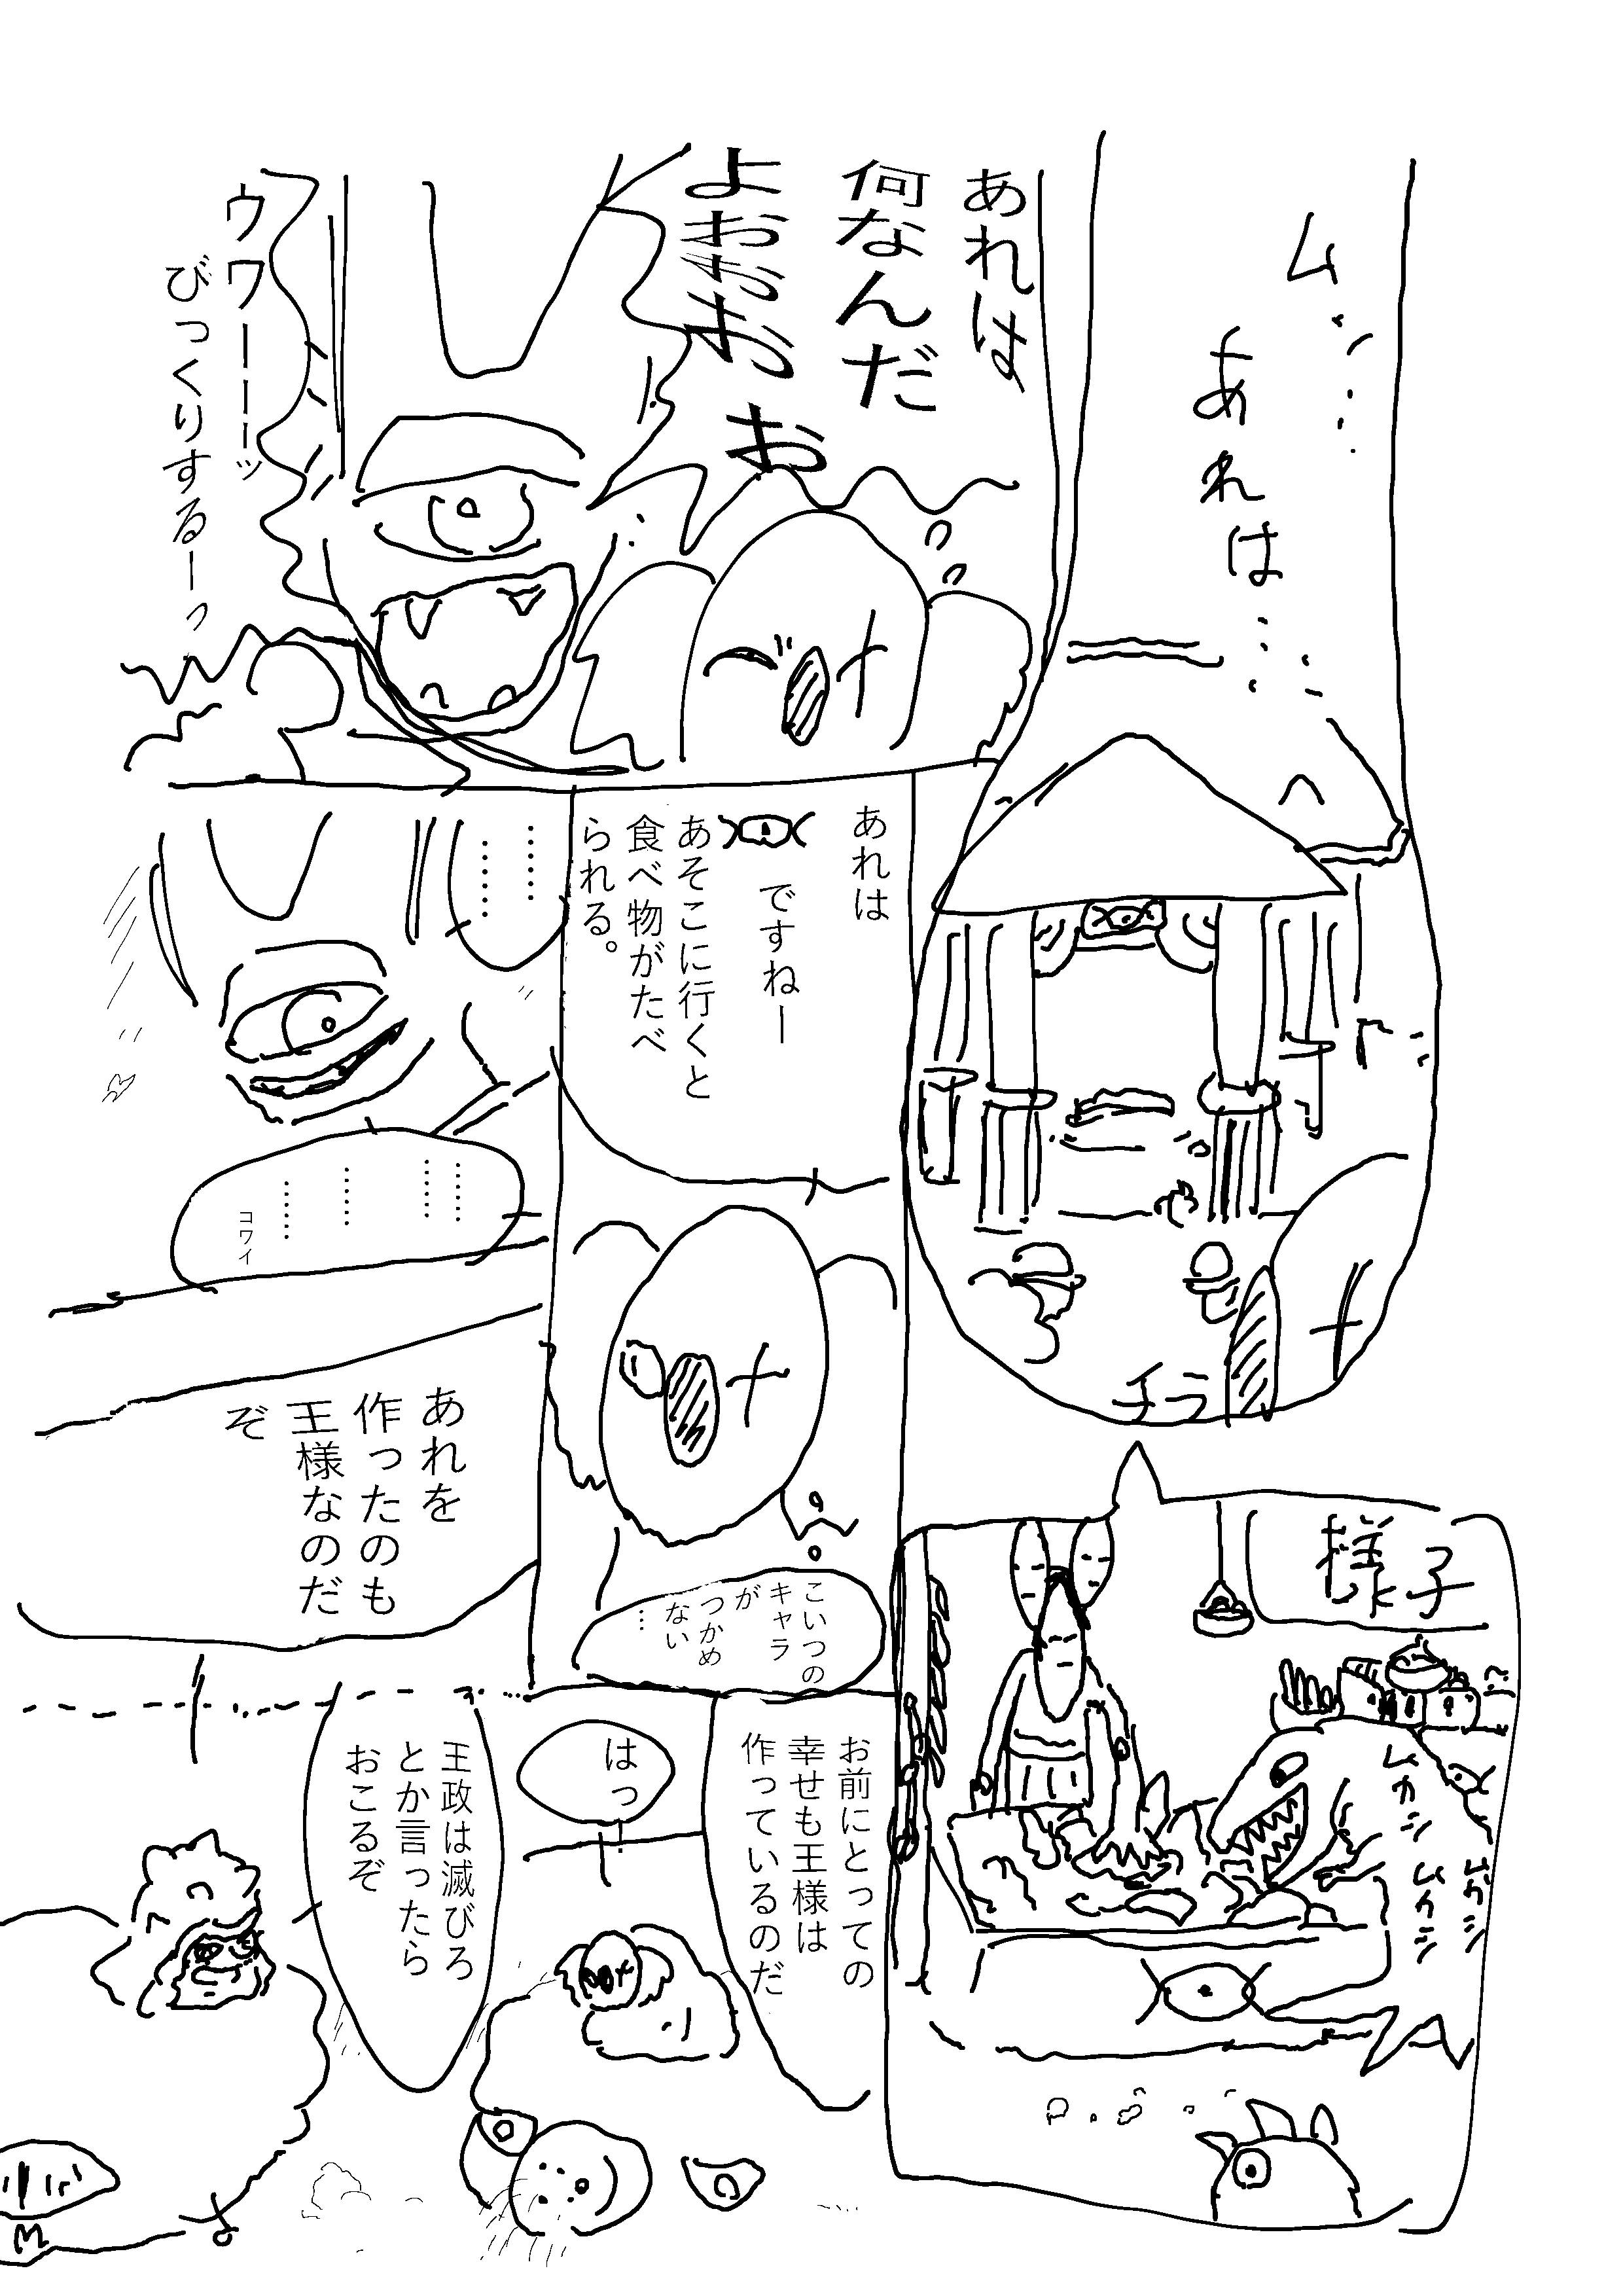 ムッ…
あれは…
チラ
様子
ムカシ
ムカシ
ムカシ
あれは
何なんだ
よおおおお
ウワーーーッ
びっくりするーっ
あれは
ですねー
あそこに行くと
食べ物がたべ
られる。
こいつの
キャラ
が
つかめ
ない
…
……
……
……
……
……
……
コワイ
あれを
作ったのも
王様なのだ
ぞ
お前にとっての
幸せも王様は
作っているのだ
はっ!
王政は滅びろ
とか言ったら
おこるぞ